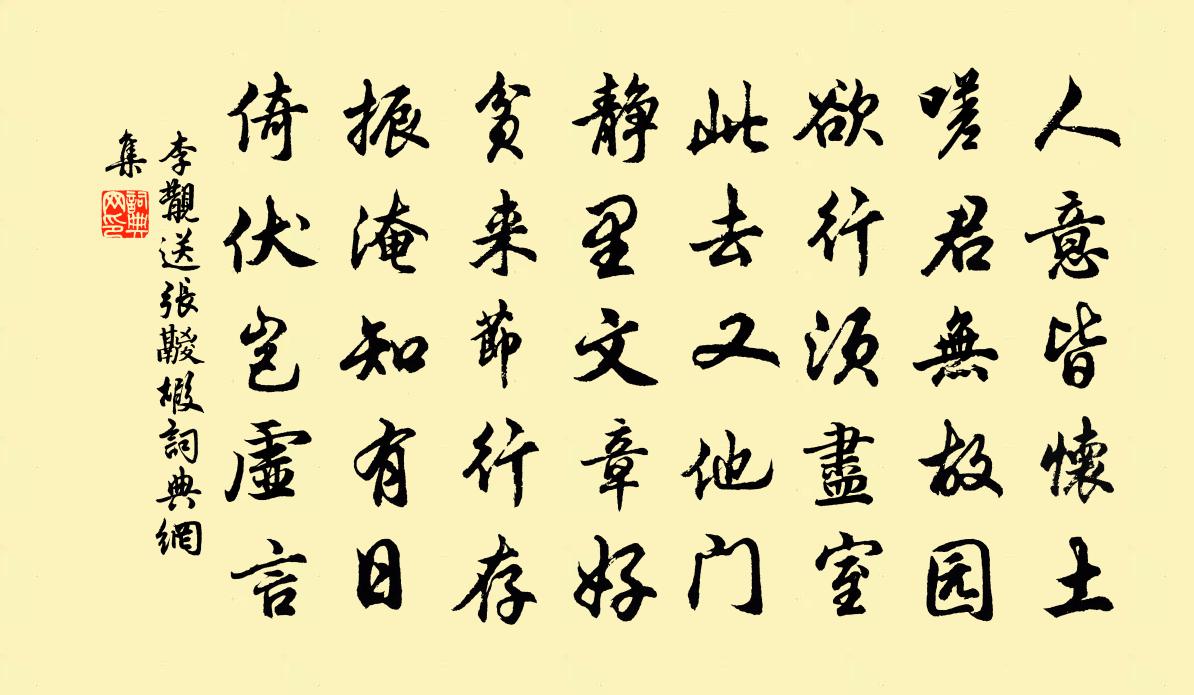 人意皆懷土
嗟君無故园
欲行須盡室
此去又他门
静里文章好
貧来節行存
振淹知有日
倚伏岂虛言
李覯送張骰椴詞典網
集
詞典
网印